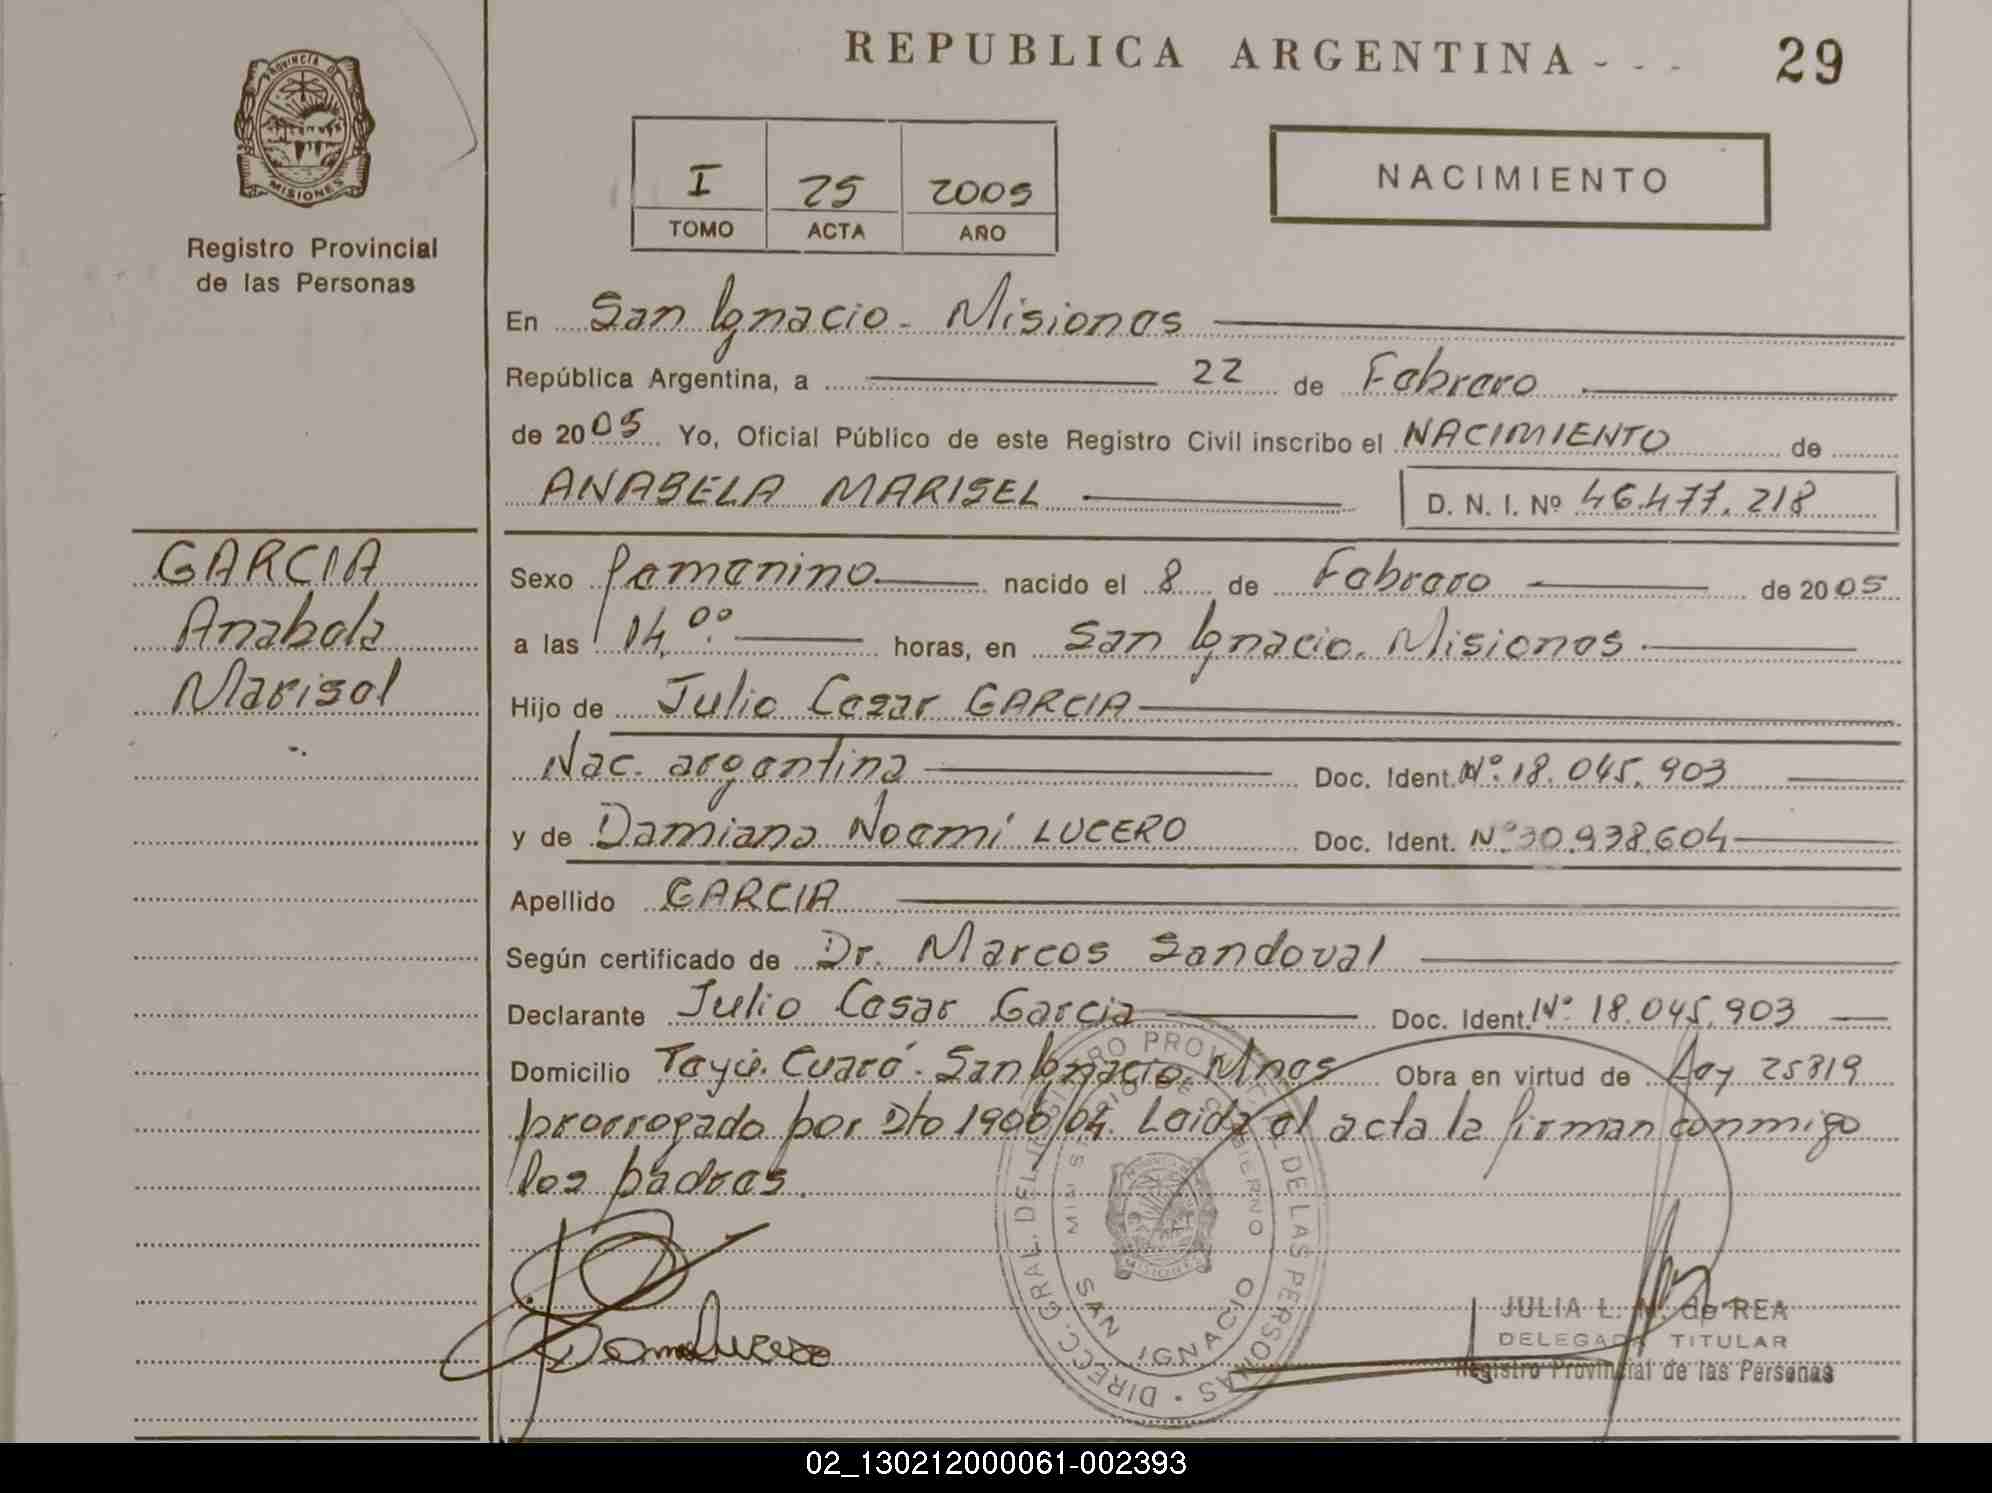 REPUBLICA ARGENTINA - - -
29
PROVINCIA DE
MISIONES
Registro Provincial
de las Personas
I 25 2005
TOMO ACTA AÑO
NACIMIENTO
En San Ignacio - Misiones
República Argentina, a 22 de Febrero
de 2005 Yo, Oficial Público de este Registro Civil inscribo el NACIMIENTO de
ANABELA MARISEL D. N. I. Nº 46.477.218
GARCIA
Anabela
Marisel
Sexo femenino nacido el 8 de Febrero de 2005
a las 14,00. horas, en San Ignacio. Misiones
Hijo de Julio Cesar GARCIA
Nac. argentina Doc. Ident. Nº. 18.045.903
y de Damiana Noemí LUCERO Doc. Ident. Nº 30.938.604
Apellido GARCIA
Según certificado de Dr. Marcos Sandoval
Declarante Julio Cesar Garcia Doc. Ident. Nº 18.045.903
Domicilio Teyú. Cuaré. San Ignacio. Mnes Obra en virtud de Ley 25819
prorrogado por Dto 1906/04. Leida el acta la firman conmigo
los padres.
DIRECC. GRAL. DEL REGISTRO PROVINCIAL DE LAS PERSONAS
MINISTERIO DE GOBIERNO
MISIONES
SAN IGNACIO
Lucero
JULIA L. M. de REA
DELEGADA TITULAR
Registro Provincial de las Personas
02_130212000061-002393